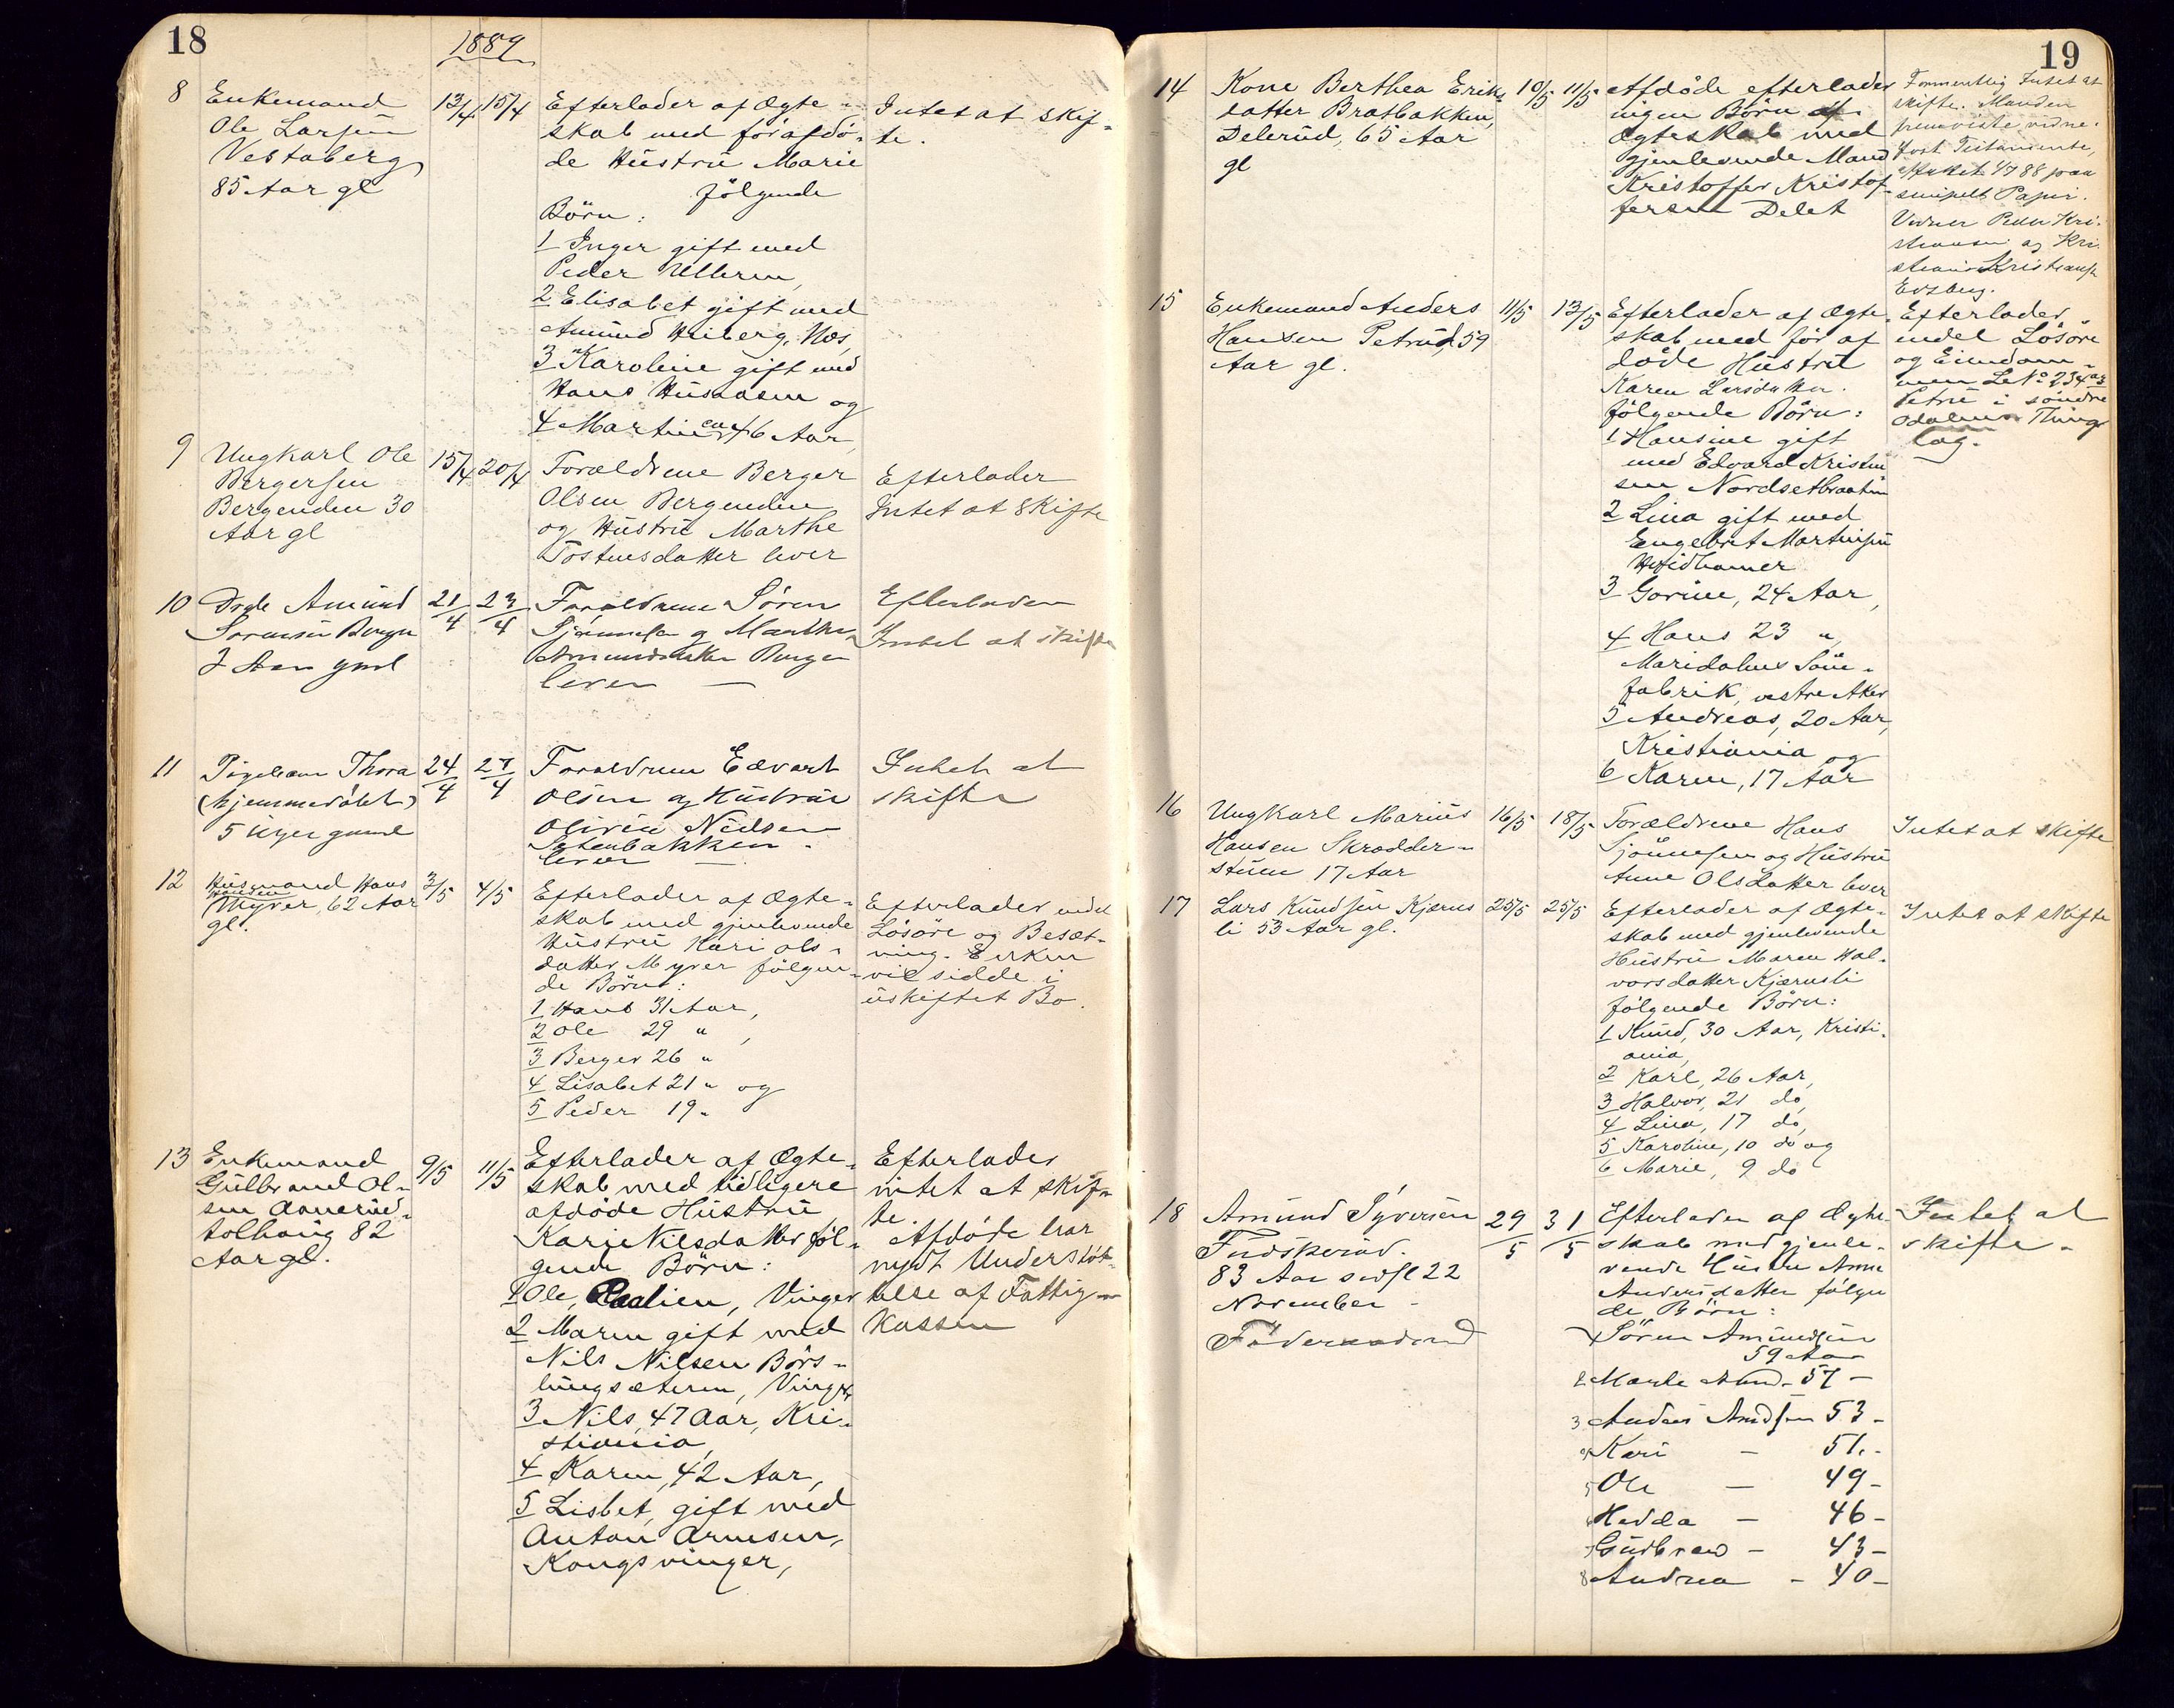 18
1889
8
Enkemand
Ole Larsen
Vestaberg
85 Aar gl
13/4
15/4
Efterlader af Ægte-
skab med før afdø-
de Hustru Marie
følgende
Börn:
1 Inger gift med
Peder Ullern,
2 Elisabet gift med
Amund Huiberg, Næs,
3 Karoline gift med
Hans Husaasen og
4 Martin ca 46 Aar
Intet at skif-
te.
9
Ungkarl Ole
Bergersen
Bergenden 30
Aar gl
15/4
20/4
Forældrene Berger
Olsen Bergenden
og Hustru Marthe
Tostensdatter lever
Efterlader
Intet at Skifte
10
Amund
Sørensen Berger
2 Aar gml
21/4
23/4
Forældrene Sören
og Marthe
Amundsdatter Berger
lever —
Efterlader
Intet at skifte
11
Pigebarn Thora
(hjemmedøbt)
5 Uger gamel
24/4
27/4
Forældrene Edvart
Olsen og Hustrue
Olivia Nielsen
lever —
Intet at
skifte
12
Husmand Hans
Hansen
Myrer, 62 Aar
gl.
3/5
4/5
Efterlader af Ægte-
skab med gjenlevende
Hustru Kari Ols-
datter Myrer følgen-
de Börn:
1 Hans 31 Aar,
2 Ole 29 " ,
3 Berger 26 "
4 Lisabet 21 " og
5 Peder 19 "
Efterlader endel
Løsöre og Besæt-
ning. Enken
vil sidde i
uskiftet Bo.
13
Enkemand
Gulbrand Ol-
sen Aanerud-
tolhaug 82
Aar gl.
9/5
11/5
Efterlader af Ægte-
skab med tidligere
afdøde Hustru
Kari Nilsdatter føl-
gende Börn:
1 Ole, Vinger
2 Maren gift med
Nils Nilsen Børs-
lungsæteren, Vinger
3 Nils, 47 Aar, Kri-
stiania,
4 Karen, 42 Aar,
5 Lisbet, gift med
Anton Arnesen,
Kongsvinger,
Efterlader
intet at skif-
te.
Afdøde har
nydt Understøt-
telse af Fattig-
kassen
19
14
Kone Berthea Eriks
datter Bratbakken,
Delerud, 65 Aar
gl
10/5
11/5
Afdøde efterlader
ingen Börn af
Ægteskab med
gjenlevende Mand
Kristoffer Kristof-
fersen Delet
Formentlig Intet at
skifte. Manden
fremviste vidne-
fast Testamente,
paa
simpelt Papir.
Vidner Peder Kri-
stiansen og Kri-
stian Kristians
Evsberg.
15
Enkemand Anders
Hansen Petrud, 59
Aar gl.
11/5
13/5
Efterlader af Ægte-
skab med før af
døde Hustru
Karen Larsdatter
følgende Börn:
1 Hansine gift
med Edvard Kristen
sen Nordsetbraaten
2 Lina gift med
Engebret Martinsen
Hvidhamer
3 Gorine, 24 Aar,
4 Hans 23 "
Maridalens Søm-
fabrik, vestre Aker
5 Andreas, 20 Aar,
Kristiania og
6 Karen, 17 Aar
Efterlader
endel Løsöre
og Eiendom-
men L No 234
Petrud i söndre
Odalens Thing
lag.
16
Ungkarl Marius
Hansen Skrædder-
stuen 17 Aar
16/5
18/5
Forældrene Hans
Sjönnesen og Hustru
Anne Olsdatter lever
Intet at skifte
17
Lars Knudsen Kjærns
li 53 Aar gl.
25/5
25/5
Efterlader af Ægte-
skab med gjenlevende
Hustru Maren Hal-
vorsdatter Kjærnsli
følgende Börn:
1 Knud, 30 Aar, Kristi-
ania,
2 Karl, 26 Aar,
3 Halvor, 21 do,
4 Lina, 17 do,
5 Karoline, 10 do og
6 Marie, 9 do
Intet at skifte
18
Amund Syversen
Fudskerud.
83 Aar sidst 22
November -
Föderaadsmd
29/5
31/5
Efterlader af Ægte-
skab med gjenle-
vende Hustru Anne
Andersdatter følgen
de Börn:
1 Sören Amundsen
59 Aar
2 Marte Amd- 57 -
3 Anders Amdsen 53 -
4 Kari - 51 -
5 Ole - 49 -
6 Hedda - 46 -
7 Gudbrand - 43 -
8 Andrea - 40 -
Intet at
skifte -